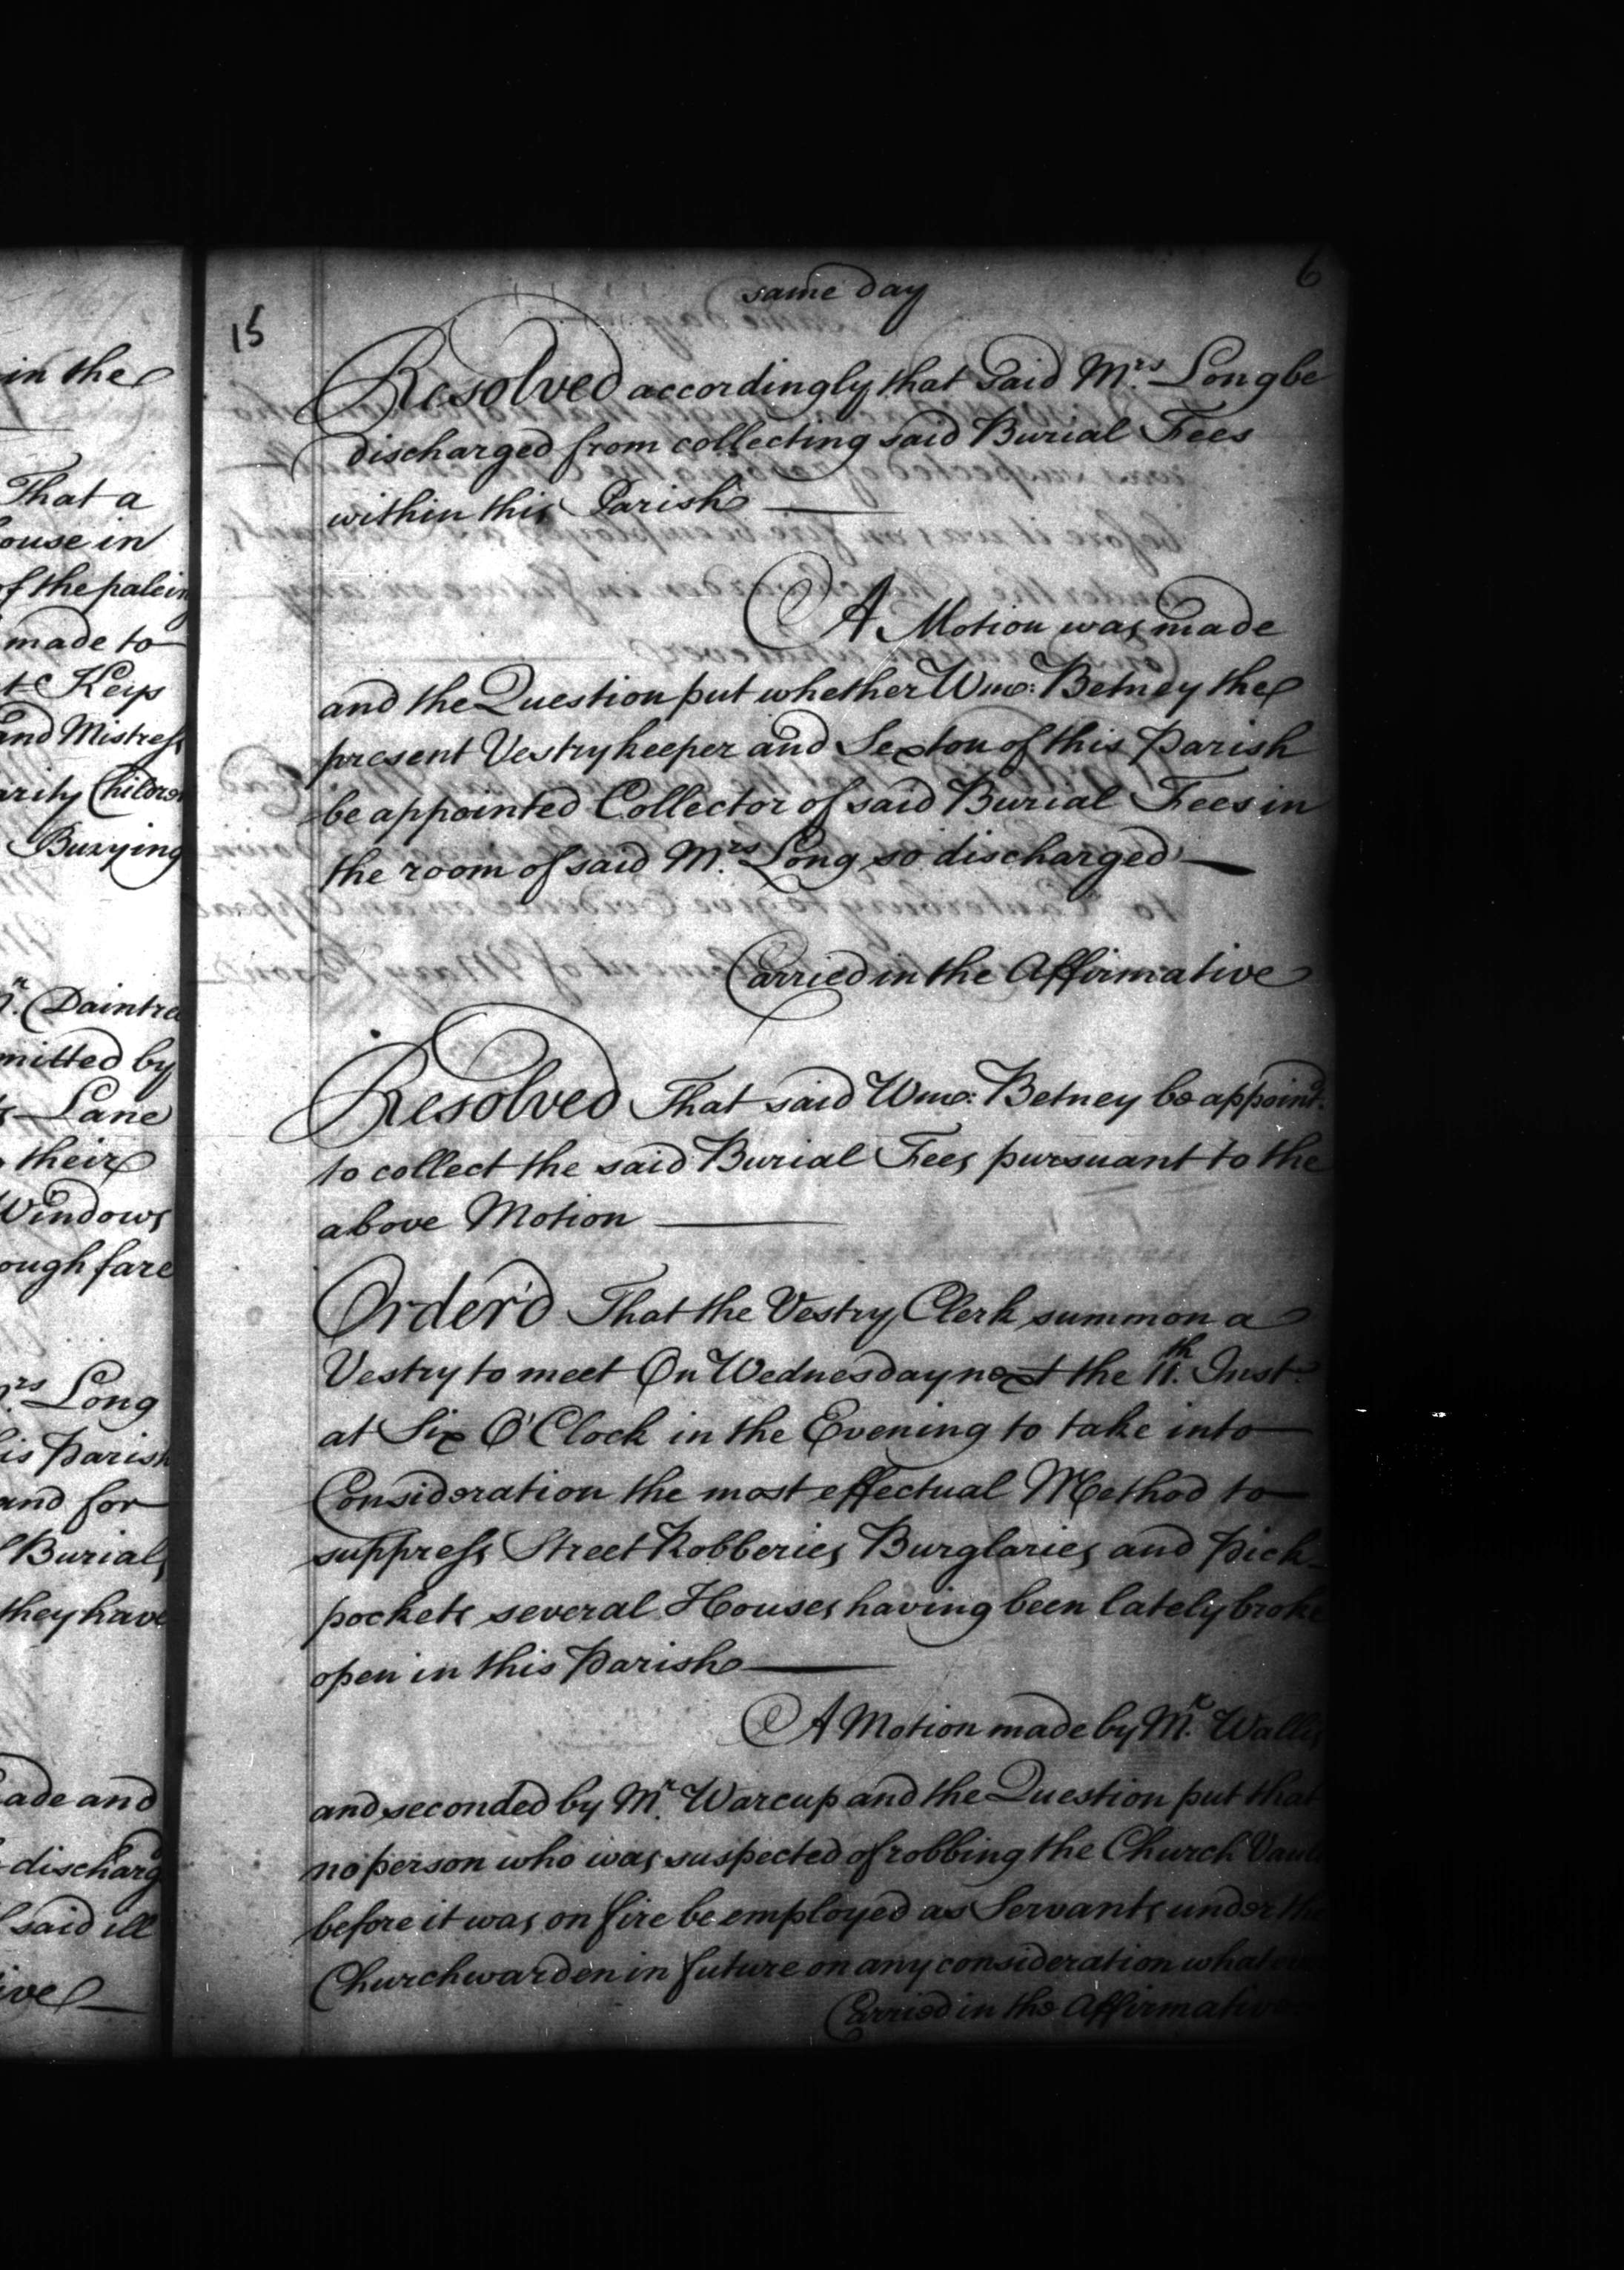 in the
That a
ouse in
of the palein
made to
t Keys
and Mistress
arity Children
Burying
Mr. Daintre
mitted by
Lane
their
Windows
ough fare
Mrs Long
is Parish
and for
Burials
they have
ade and
discharg
said ill
ive
6
same day
15
Resolved accordingly that said Mrs. Long be
discharged from collecting said Burial Fees
within this Parish
A Motion was made
and the Question put whether Wm: Betney the
present Vestry keeper and Sexton of this Parish
be appointed Collector of said Burial Fees in
the room of said Mrs. Long so discharged
Carried in the Affirmative
Resolved That said Wm: Betney be appoint.
to collect the said Burial Fees pursuant to the
above Motion
Order'd That the Vestry Clerk summon a
Vestry to meet On Wednesday next the 11.th Inst.
at Six O'Clock in the Evening to take into
Consideration the most effectual Method to
suppress Street Robberies Burglaries and Pick-
pockets several Houses having been lately broke
open in this Parish
A Motion made by Mr. Wallis
and seconded by Mr. Warcup and the Question put that
no person who was suspected of robbing the Church Vault
before it was on fire be employed as Servants under the
Churchwarden in future on any consideration whatever
Carried in the Affirmative